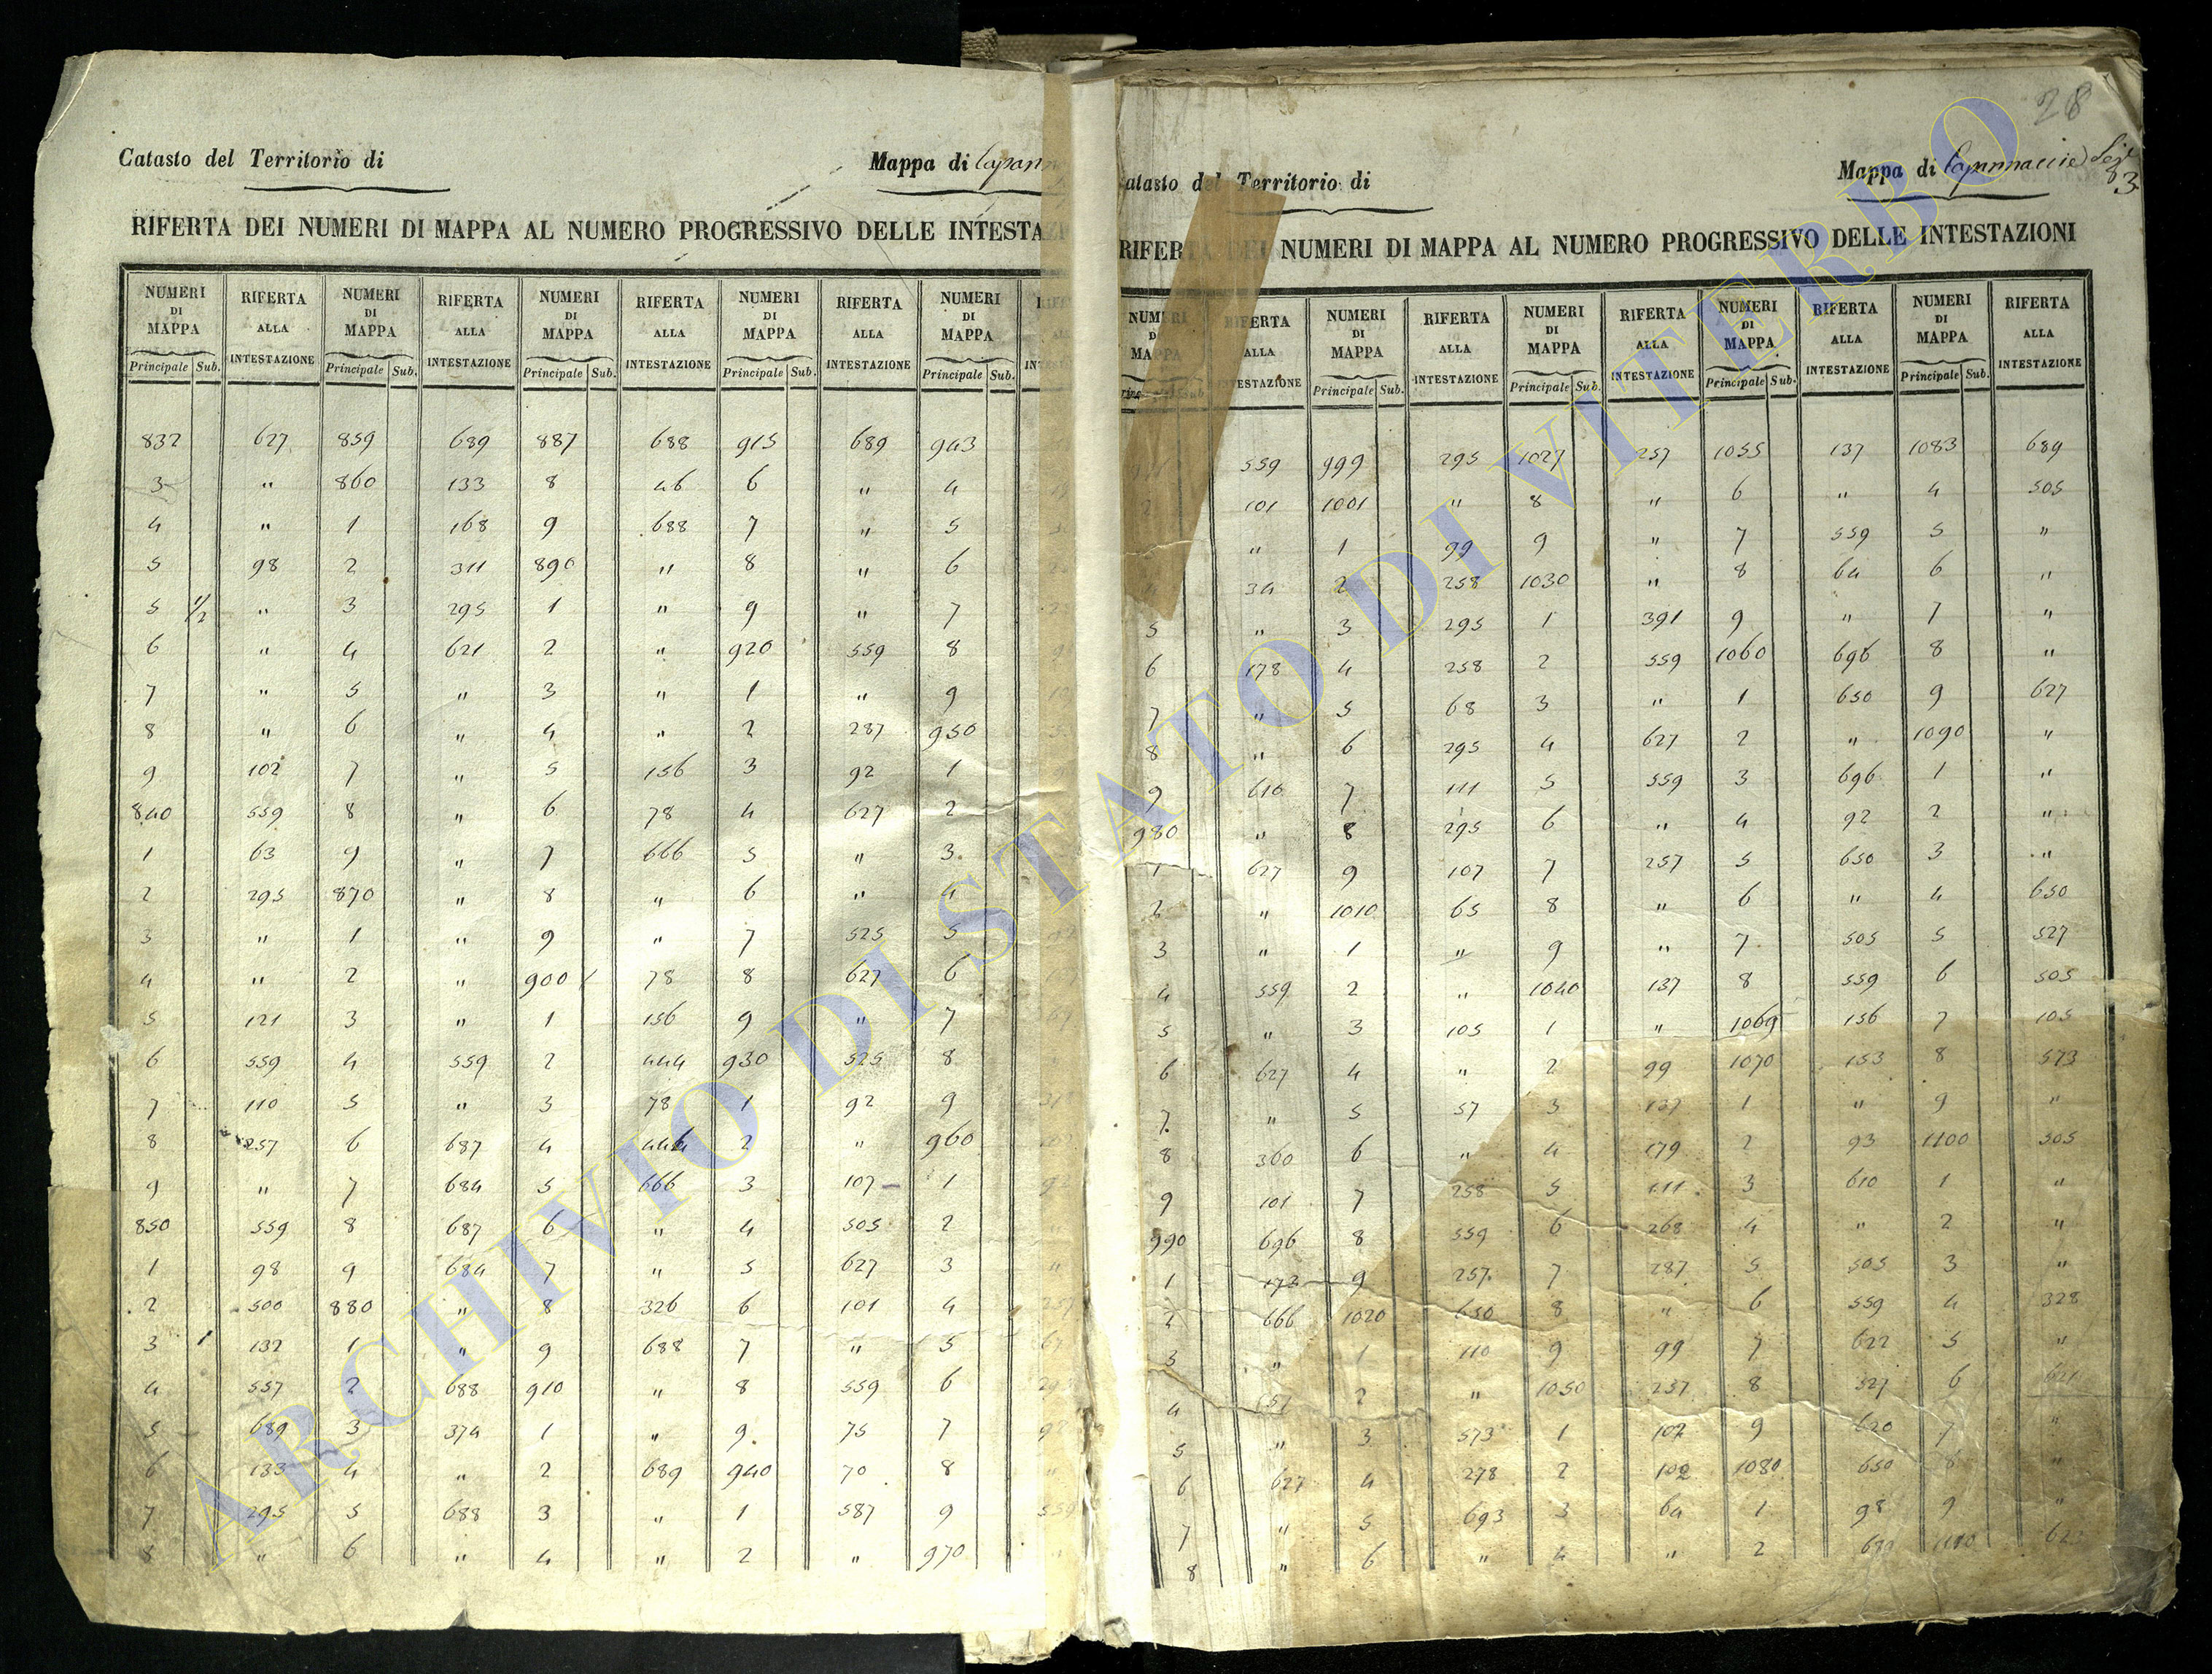 28
Catasto del Territorio di
Mappa di Capann
RIFERTA DEI NUMERI DI MAPPA AL NUMERO PROGRESSIVO DELLE INTESTA
NUMERI DI MAPPA RIFERTA ALLA INTESTAZIONE NUMERI DI MAPPA RIFERTA ALLA INTESTAZIONE NUMERI DI MAPPA RIFERTA ALLA INTESTAZIONE NUMERI DI MAPPA RIFERTA ALLA INTESTAZIONE NUMERI DI MAPPA
Principale Sub. Principale Sub. Principale Sub. Principale Sub. Principale Sub.
832 627 859 689 887 688 915 689 943
3 " 860 133 8 46 6 " 4
4 " 1 168 9 688 7 " 5
5 98 2 311 890 " 8 " 6
5 1/2 " 3 295 1 " 9 " 7
6 " 4 621 2 " 920 559 8
7 " 5 " 3 " 1 " 9
8 " 6 " 4 " 2 287 950
9 102 7 " 5 156 3 92 1
840 559 8 " 6 78 4 627 2
1 63 9 " 7 666 5 " 3
2 295 870 " 8 " 6 " 4
3 " 1 " 9 " 7 525 5
4 " 2 " 900 78 8 627 6
5 121 3 " 1 156 9 " 7
6 559 4 559 2 444 930 525 8
7 110 5 " 3 78 1 92 9
8 257 6 687 4 444 2 " 960
9 " 7 684 5 666 3 107 1
850 559 8 687 6 " 4 505 2
1 98 9 684 7 " 5 627 3
2 500 880 " 8 326 6 101 4
3 132 1 " 9 688 7 " 5
4 557 2 688 910 " 8 559 6
5 689 3 374 1 " 9 75 7
6 133 4 " 2 689 940 70 8
7 295 5 688 3 " 1 587 9
8 " 6 " 4 " 2 " 970
atasto del Territorio di
Mappa di Capannaccie Sez
83
RIFERTA DEI NUMERI DI MAPPA AL NUMERO PROGRESSIVO DELLE INTESTAZIONI
NUMERI DI MAPPA RIFERTA ALLA INTESTAZIONE NUMERI DI MAPPA RIFERTA ALLA INTESTAZIONE NUMERI DI MAPPA RIFERTA ALLA INTESTAZIONE NUMERI DI MAPPA RIFERTA ALLA INTESTAZIONE NUMERI DI MAPPA RIFERTA ALLA INTESTAZIONE
Principale Sub. Principale Sub. Principale Sub. Principale Sub.
559 999 295 1027 257 1055 137 1083 689
2 101 1001 " 8 " 6 " 4 505
" 1 99 9 " 7 559 5 "
34 2 258 1030 " 8 64 6 "
5 " 3 295 1 391 9 " 7 "
6 178 4 258 2 559 1060 696 8 "
7 " 5 68 3 " 1 650 9 627
8 " 6 295 4 627 2 " 1090 "
9 616 7 111 5 559 3 696 1 "
980 " 8 295 6 " 4 92 2 "
1 627 9 107 7 257 5 650 3 "
2 " 1010 65 8 " 6 " 4 650
3 " 1 " 9 " 7 505 5 527
4 559 2 " 1040 137 8 559 6 505
5 " 3 105 1 " 1069 156 7 105
6 627 4 " 2 99 1070 153 8 573
7 " 5 57 3 137 1 " 9 "
8 360 6 " 4 179 2 93 1100 505
9 101 7 258 5 111 3 610 1 "
990 696 8 559 6 268 4 " 2 "
1 172 9 257 7 287 5 505 3 "
2 666 1020 650 8 " 6 559 4 328
3 " 1 110 9 99 7 622 5 "
4 2 " 1050 257 8 327 6 621
5 " 3 573 1 107 9 620 7 "
6 627 4 278 2 102 1080 650 8 "
7 " 5 693 3 64 1 98 9 "
8 " 6 " 4 " 2 1110
ARCHIVIO DI STATO DI VITERBO